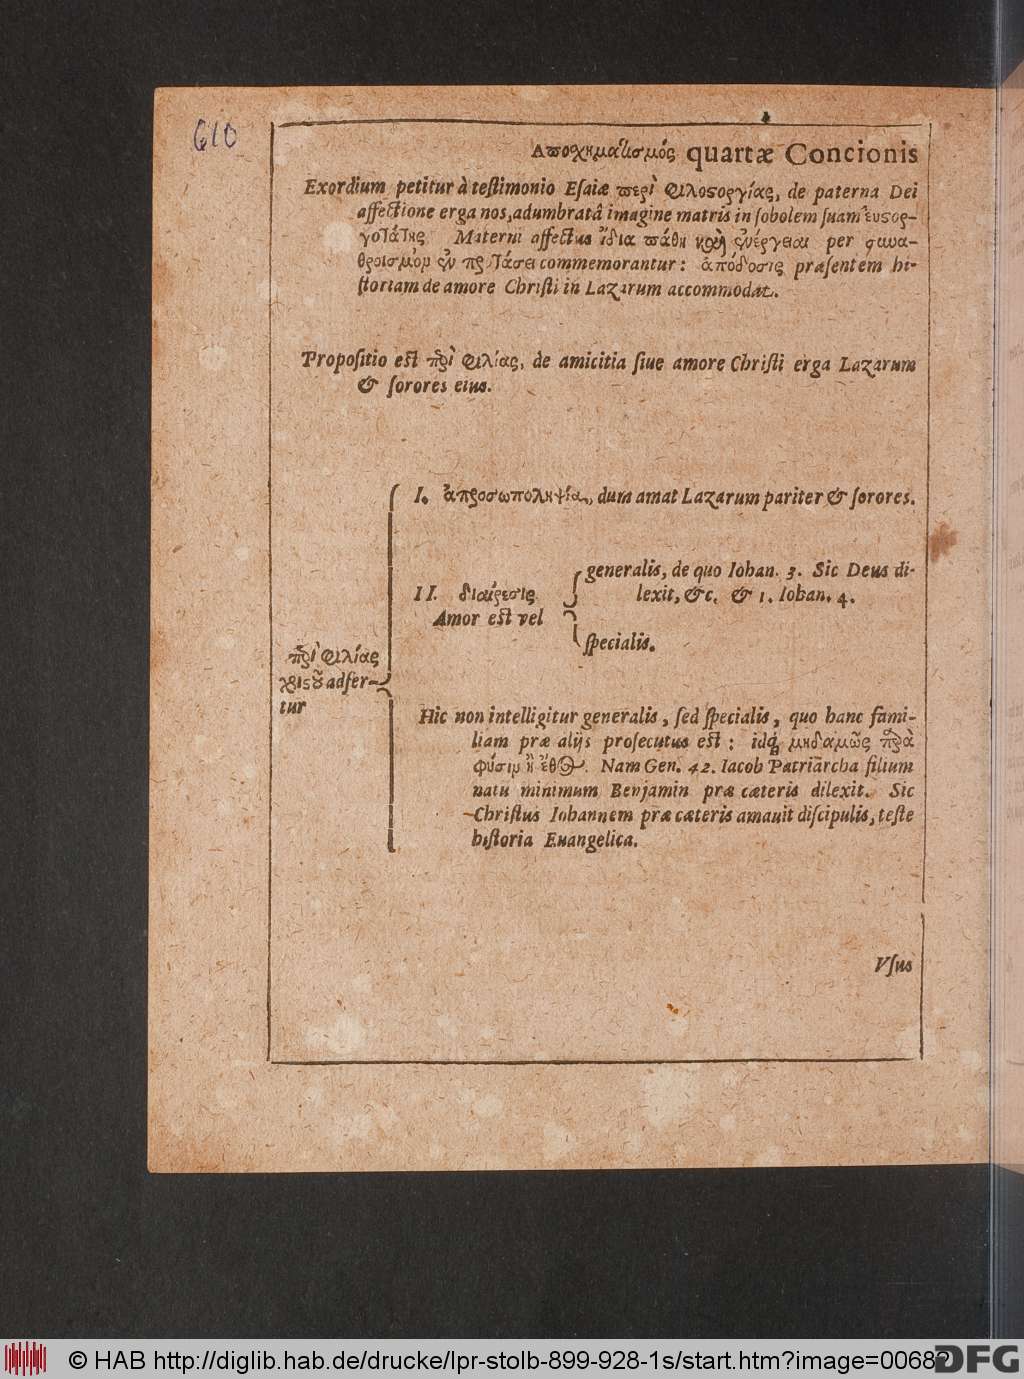 610
Αποσχηματισμός quartæ Concionis
Exordium petitur à testimonio Esaiæ περὶ φιλοστοργίας, de paterna Dei
affectione erga nos, adumbratâ imagine matris in sobolem suam
Materni affectus ἴδια πάθη καὶ ἐνέργειαι per συνα-
θροισμὸν ἐν προτάσει commemorantur: ἀπόδοσις præsentem hi-
storiam de amore Christi in Lazarum accommodat.
Propositio est περὶ φιλίας, de amicitia siue amore Christi erga Lazarum
& sorores eius.
I. ἀπροσωποληψία, dum amat Lazarum pariter & sorores.
generalis, de quo Iohan. 3. Sic Deus di-
lexit, &c. & 1. Iohan. 4.
II. διαίρεσις
Amor est vel
specialis.
περὶ φιλίας
χριστοῦ adfer-
tur
Hic non intelligitur generalis, sed specialis, quo hanc fami-
liam præ alijs prosecutus est: idq́; μηδαμῶς παρὰ
φύσιν ἢ ἔθος. Nam Gen. 42. Iacob Patriarcha filium
natu minimum Benjamin præ cæteris dilexit. Sic
Christus Iohannem præ cæteris amauit discipulis, teste
historia Euangelica.
Vsus
© HAB http://diglib.hab.de/drucke/lpr-stolb-899-928-1s/start.htm?image=00682
DFG